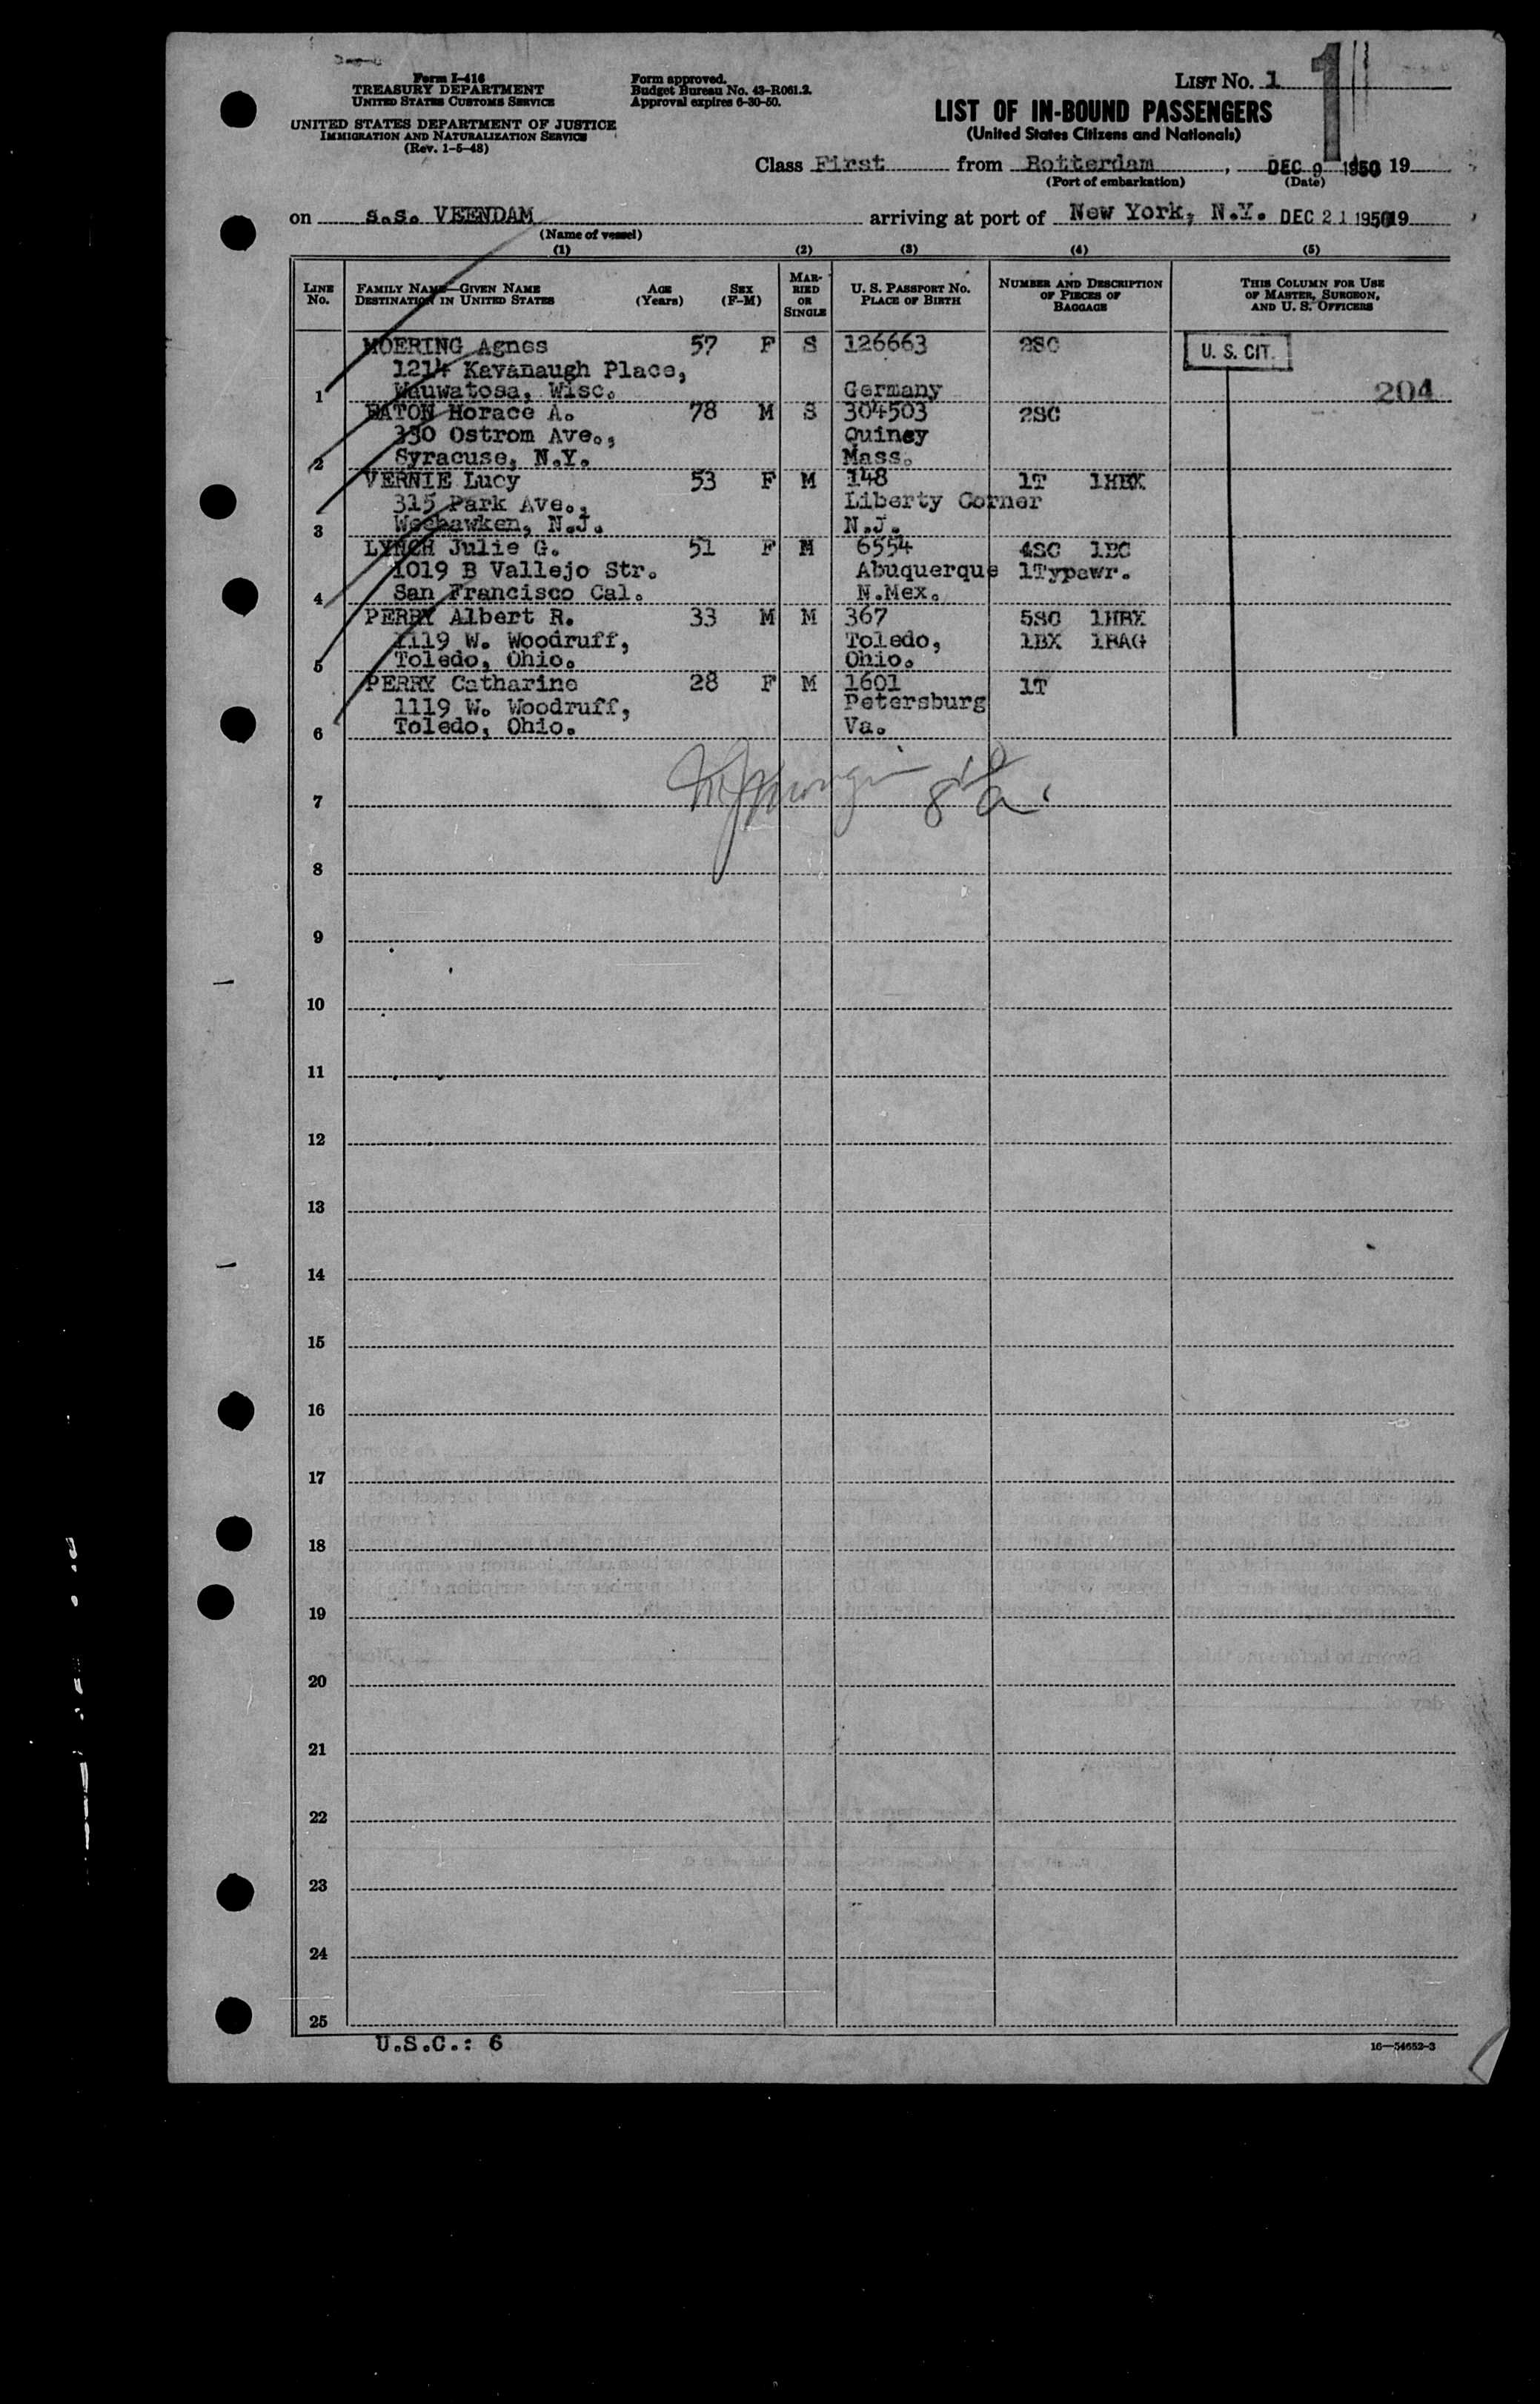 Form I-416
TREASURY DEPARTMENT
UNITED STATES CUSTOMS SERVICE
UNITED STATES DEPARTMENT OF JUSTICE
IMMIGRATION AND NATURALIZATION SERVICE
(Rev. 1-5-48)
Form approved.
Budget Bureau No. 43-R061.2.
Approval expires 6-30-50.
LIST NO. 1
1
LIST OF IN-BOUND PASSENGERS
(United States Citizens and Nationals)
Class First from Rotterdam, DEC 9 1950 19
(Port of embarkation) (Date)
on s.s. VEENDAM arriving at port of New York, N.Y. DEC 21 1950 19
(Name of vessel)
(1) (2) (3) (4) (5)
LINE No. FAMILY NAME—GIVEN NAME DESTINATION IN UNITED STATES AGE (Years) SEX (F-M) MARRIED OR SINGLE U. S. PASSPORT NO. PLACE OF BIRTH NUMBER AND DESCRIPTION OF PIECES OF BAGGAGE THIS COLUMN FOR USE OF MASTER, SURGEON, AND U. S. OFFICERS
MOERING Agnes 57 F S 126663 2SC U. S. CIT.
1214 Kavanaugh Place,
1 Wauwatosa, Wisc. Germany 204
EATON Horace A. 78 M S 304503 2SC
330 Ostrom Ave., Quincy
2 Syracuse, N.Y. Mass.
VERNIE Lucy 53 F M 148 1T 1HBX
315 Park Ave., Liberty Corner
3 Weehawken, N.J. N.J.
LYNCH Julie G. 51 F M 6554 4SC 1BC
1019 B Vallejo Str. Abuquerque 1Typewr.
4 San Francisco Cal. N.Mex.
PERRY Albert R. 33 M M 367 5SC 1HBX
1119 W. Woodruff, Toledo, 1BX 1BAG
5 Toledo, Ohio. Ohio.
PERRY Catharine 28 F M 1601 1T
1119 W. Woodruff, Petersburg
6 Toledo, Ohio. Va.
7
8
9
10
11
12
13
14
15
16
17
18
19
20
21
22
23
24
25
U.S.C.: 6
16—54652-3